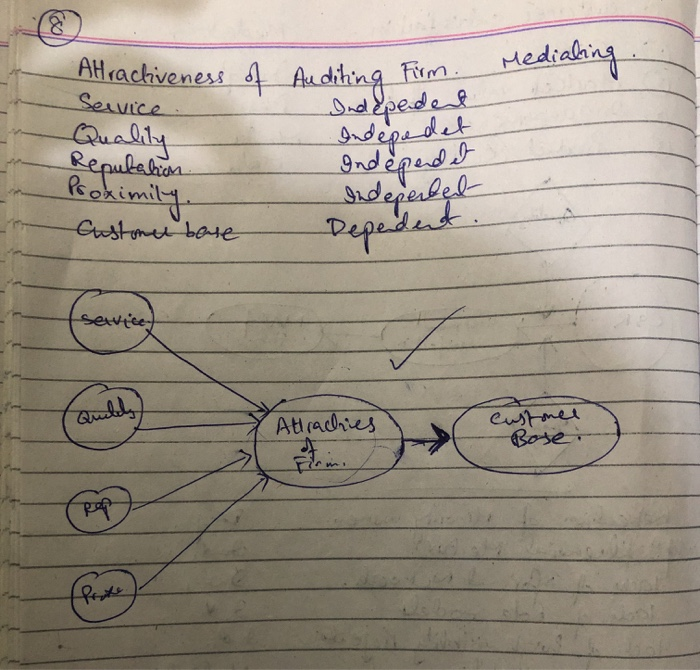 8
Attractiveness of Auditing Firm. Mediating.
Service. Independent
Quality Independet
Reputation Independet
Proximity. Independet
Customer base Dependent.
Service
Quality
Attractivies
of
Firm.
Customer
Base.
Rep
Prox